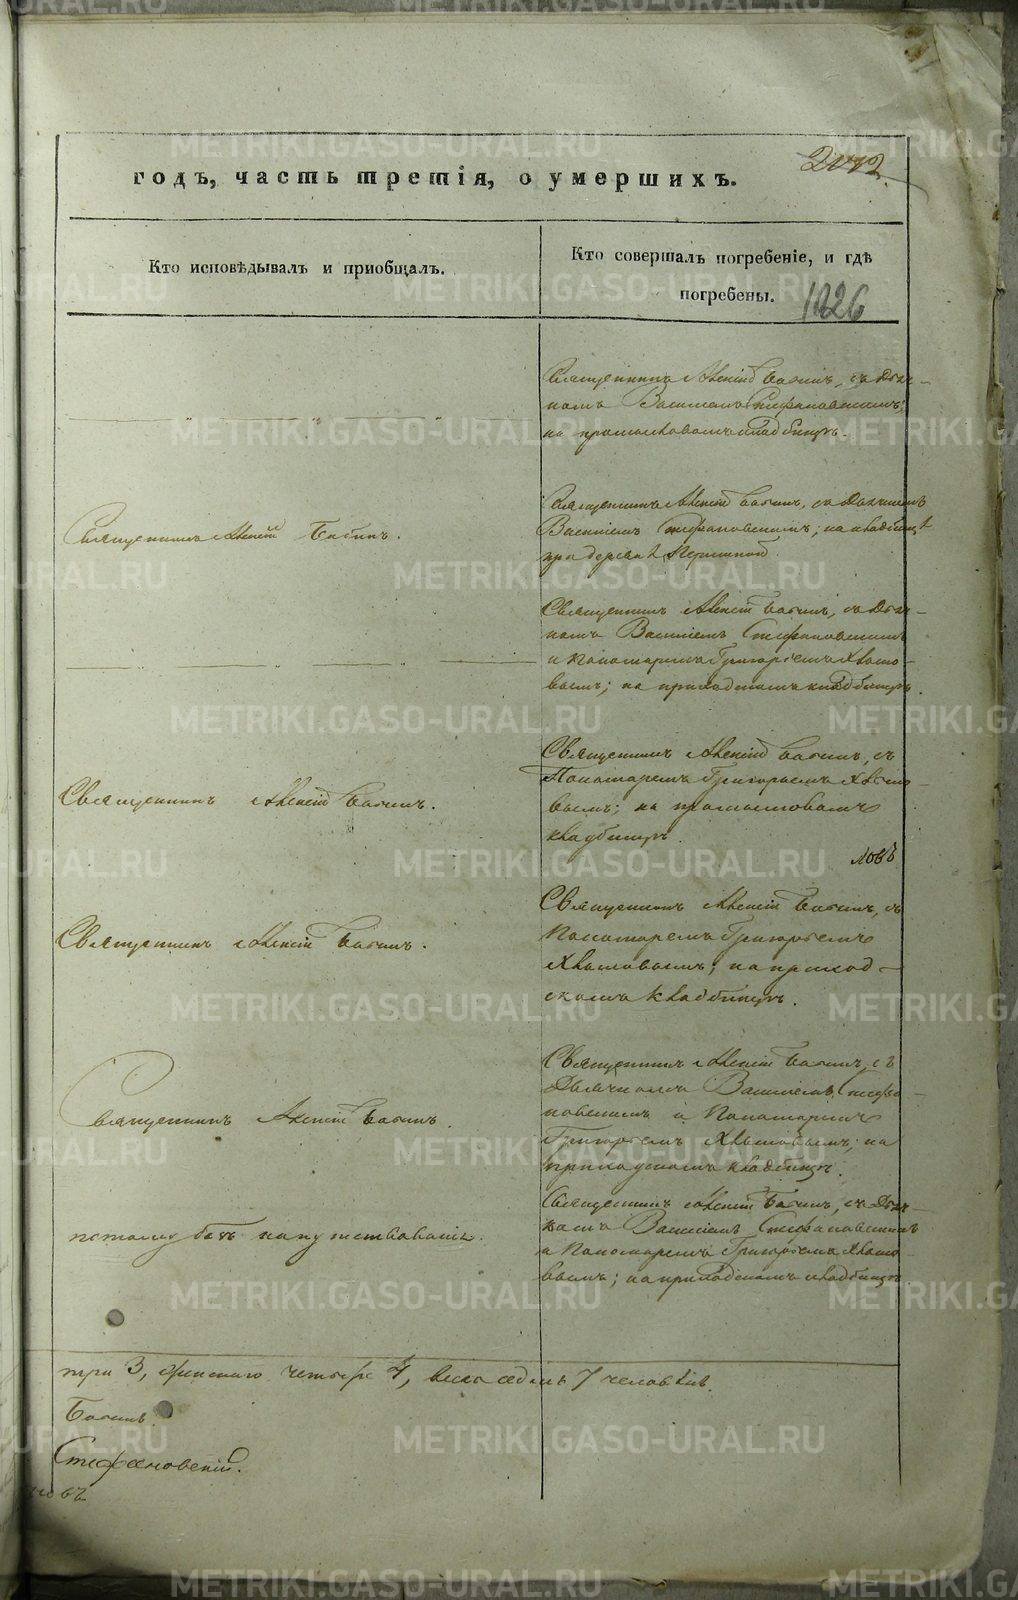 годъ, часть третія, о умершихъ.
Кто исповѣдывалъ и приобщалъ.
Кто совершалъ погребеніе, и гдѣ
погребены.
1226
Священникъ Алексій Бабинъ, съ Дьяч-
комъ Василіемъ Стефановскимъ;
на кладбищѣ.
Священникъ Алексій Бабинъ.
Священникъ Алексій Бабинъ, съ Дьячкомъ
Василіемъ Стефановскимъ; на кладбищѣ
при деревнѣ
Священникъ Алексій Бабинъ, съ Дьяч-
комъ Василіемъ Стефановскимъ
и Пономаремъ Григорьемъ Хвосто-
вымъ; на приходскомъ кладбищѣ.
Священникъ Алексій Бабинъ.
Священникъ Алексій Бабинъ, съ
Пономаремъ Григорьемъ Хвосто-
вымъ; на
кладбищѣ.
Священникъ Алексій Бабинъ.
Священникъ Алексій Бабинъ, съ
Пономаремъ Григорьемъ
Хвостовымъ; на приход-
скомъ кладбищѣ.
Священникъ Алексій Бабинъ.
Священникъ Алексій Бабинъ, съ
Дьячкомъ Василіемъ Стефа-
новскимъ и Пономаремъ
Григорьемъ Хвостовымъ; на
приходскомъ кладбищѣ.
напутствованія.
Священникъ Алексій Бабинъ, съ Дьяч-
комъ Василіемъ Стефановскимъ
и Пономаремъ Григорьемъ Хвосто-
вымъ; на приходскомъ кладбищѣ
три 3, женскаго четыре 4, всего седмь 7 человѣкъ.
Бабинъ.
Стефановскій.
METRIKI.GASO-URAL.RU